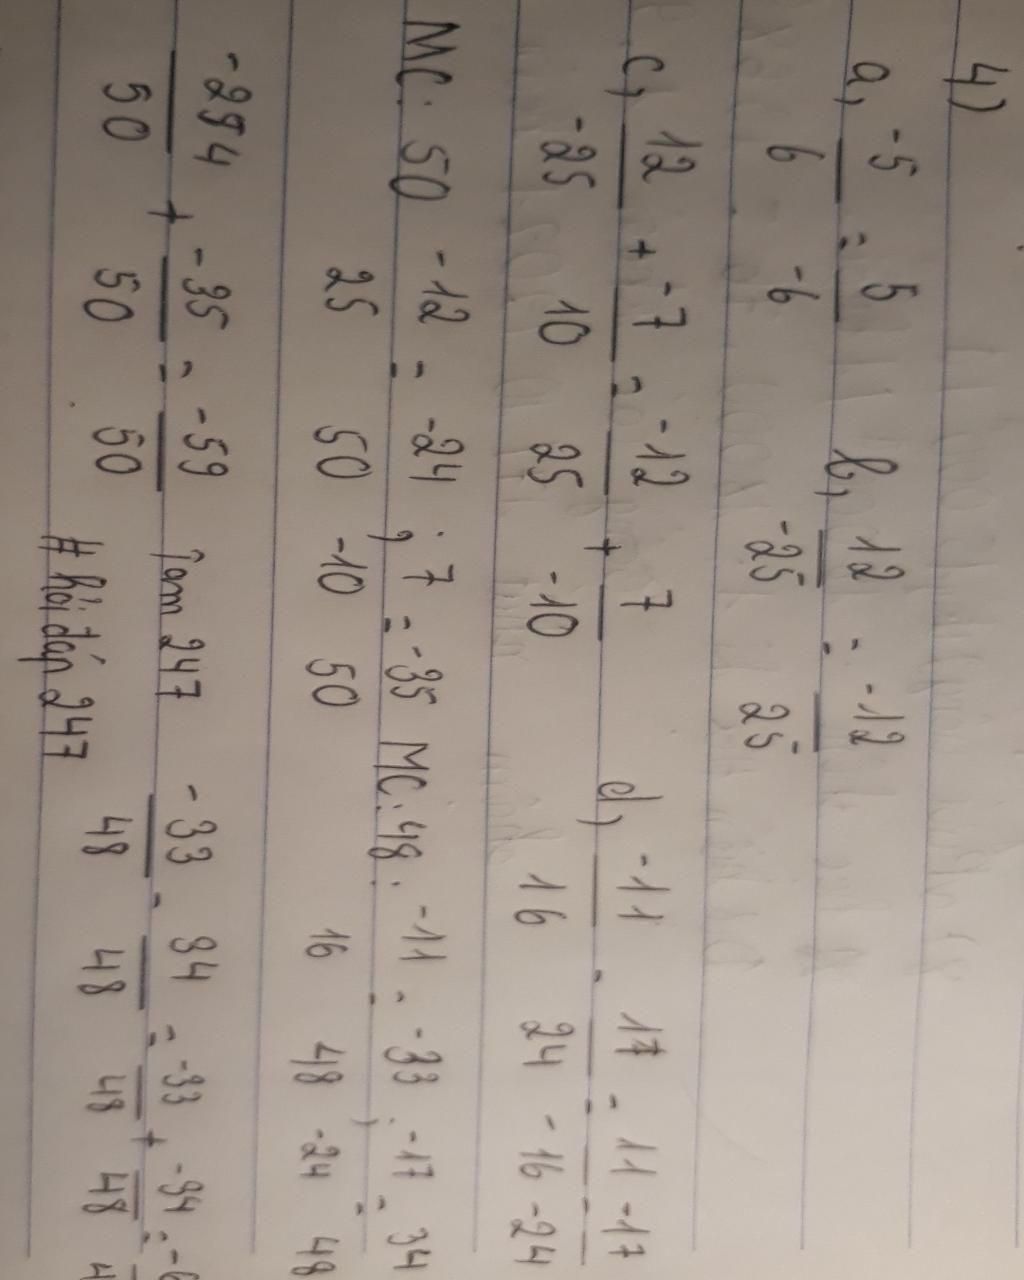 4)
a, -5/6 = 5/-6 b, 12/-25 = -12/25
c, 12/-25 + -7/10 = -12/25 + 7/-10 d, -11/16 - 17/24 = 11/-16 - -17/-24
MC: 50 -12/25 = -24/50 ; 7/-10 = -35/50 MC: 48: -11/16 = -33/48 ; -17/-24 = 34/48
-294/50 + -35/50 = -59/50 Tam247 -33/48 - 34/48 = -33/48 + -34/48 =
# hỏi đáp 247